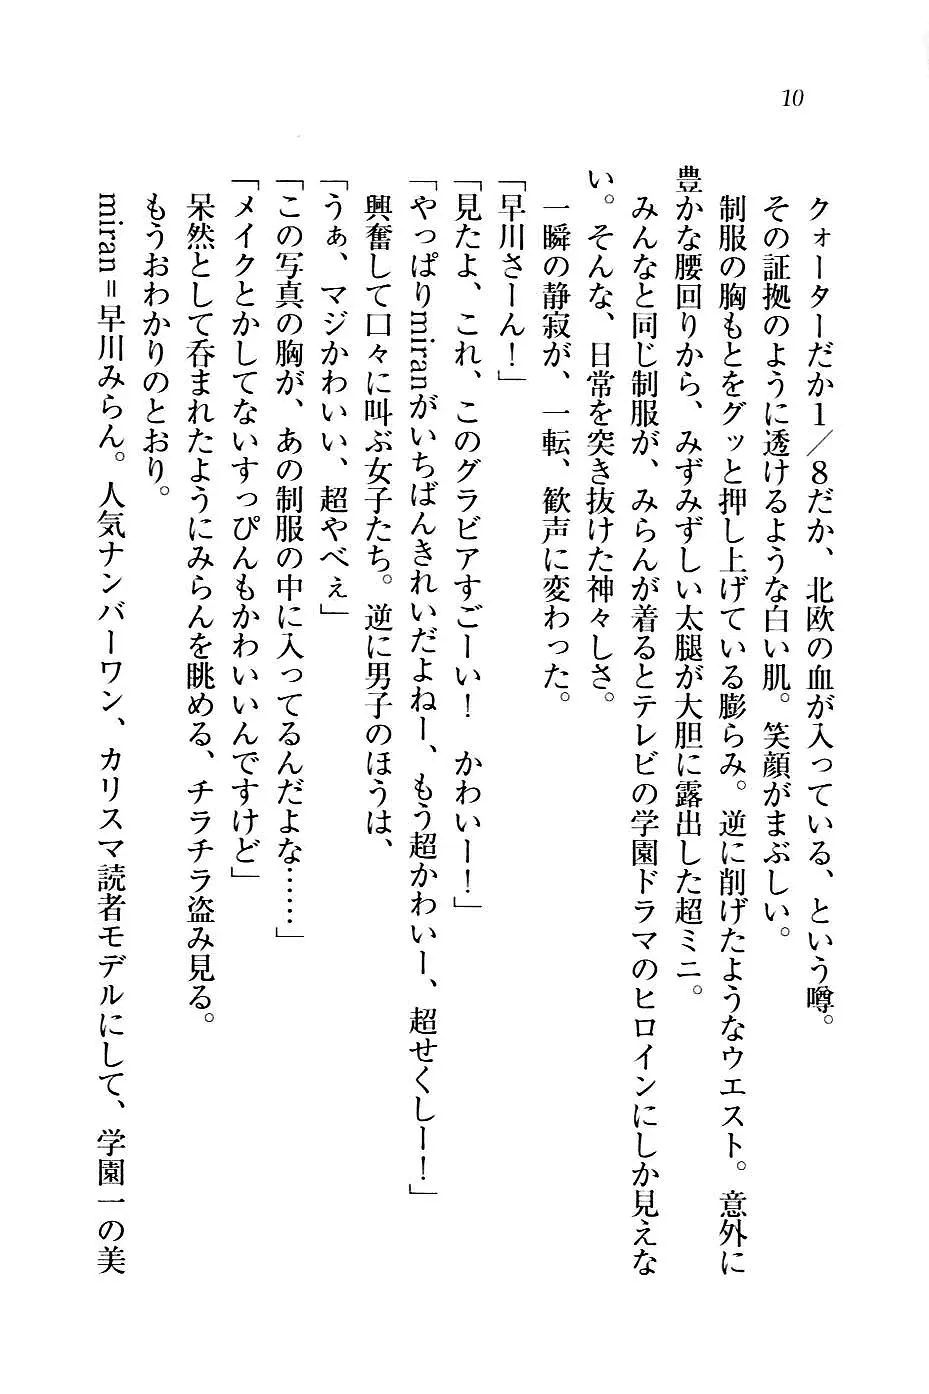 10
クォーターだか1／8だか、北欧の血が入っている、という噂。
その証拠のように透けるような白い肌。笑顔がまぶしい。
制服の胸もとをグッと押し上げている膨らみ。逆に削げたようなウエスト。意外に
豊かな腰回りから、みずみずしい太腿が大胆に露出した超ミニ。
みんなと同じ制服が、みらんが着るとテレビの学園ドラマのヒロインにしか見えな
い。そんな、日常を突き抜けた神々しさ。
一瞬の静寂が、一転、歓声に変わった。
「早川さーん！」
「見たよ、これ、このグラビアすごーい！　かわいー！」
「やっぱりmiranがいちばんきれいだよねー、もう超かわいー、超せくしー！」
興奮して口々に叫ぶ女子たち。逆に男子のほうは、
「うぁ、マジかわいい、超やべぇ」
「この写真の胸が、あの制服の中に入ってるんだよな……」
「メイクとかしてないすっぴんもかわいいんですけど」
呆然として呑まれたようにみらんを眺める、チラチラ盗み見る。
もうおわかりのとおり。
miran＝早川みらん。人気ナンバーワン、カリスマ読者モデルにして、学園一の美